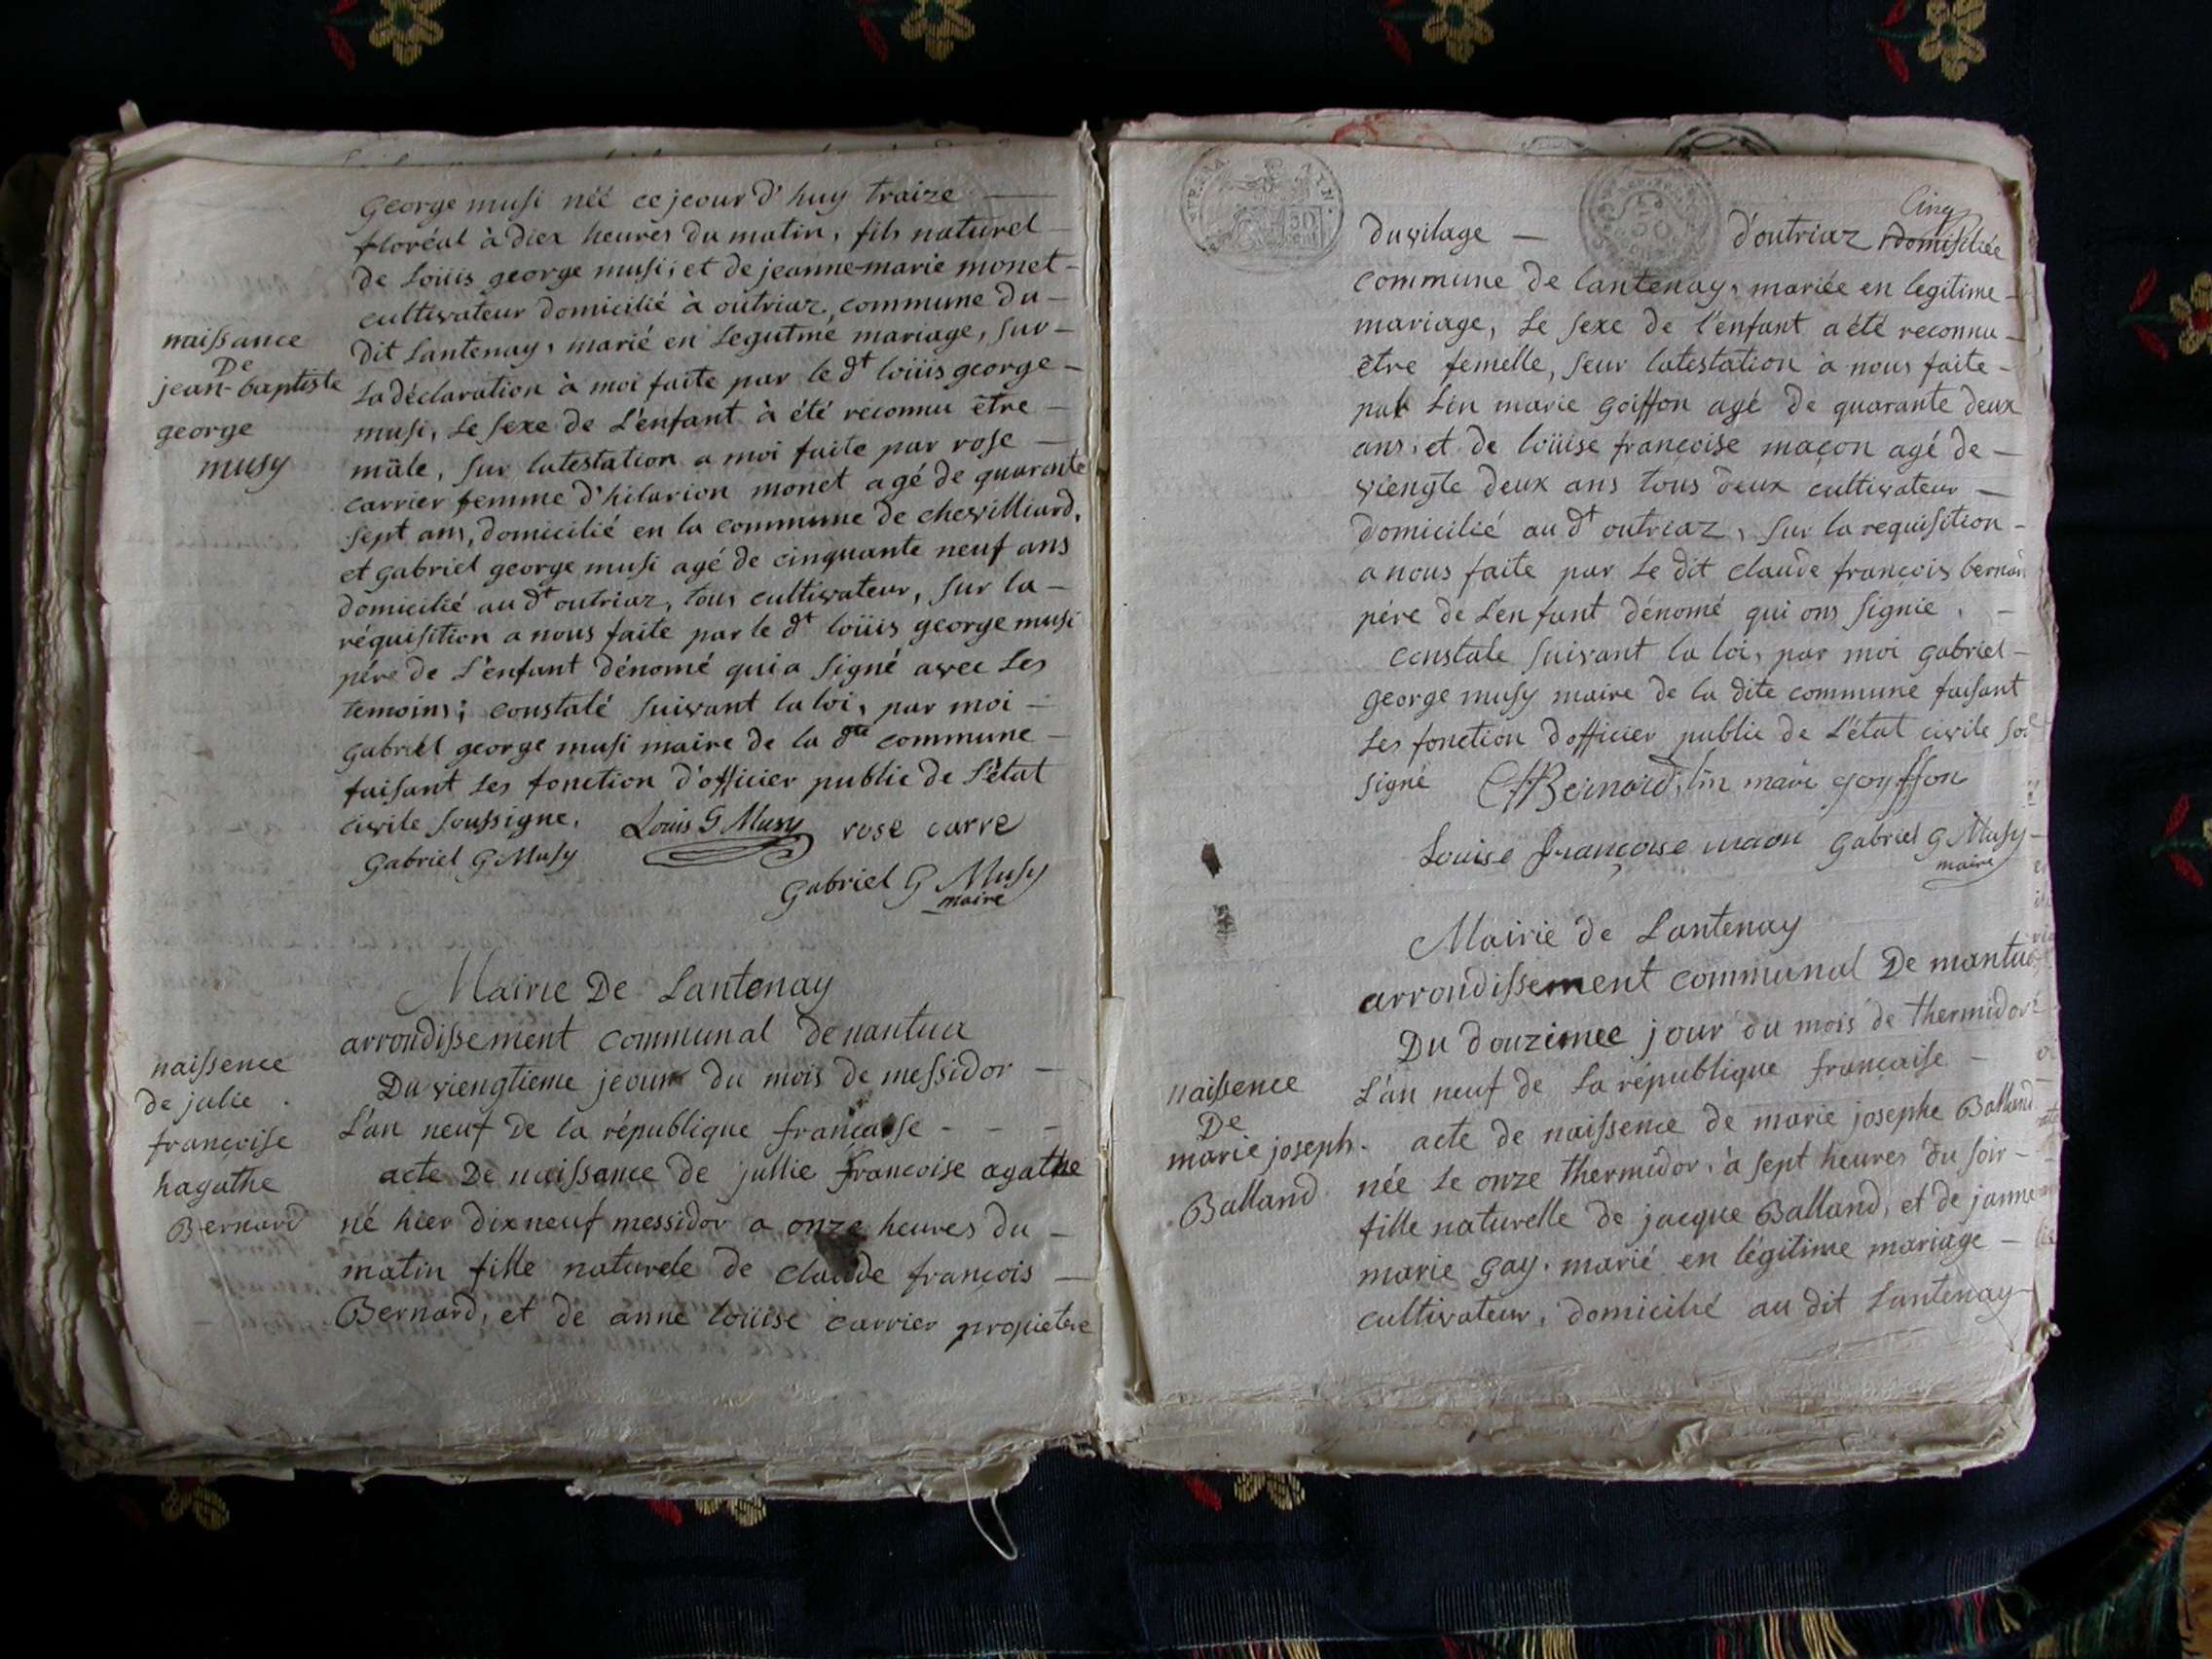 george musi néé ce jeour d'huy traize
floréal à diex heures du matin, fils naturel
de Loüis george musi, et de jeanne-marie monet
cultivateur domicilié à outriaz, commune du
dit Lantenay, marié en Legutme mariage, sur
La déclaration à moi faite par le dt loüis george
musi, Le sexe de L'enfant à été reconnu être
mâle, sur latestation a moi faite par rose
carrier femme d'hilarion monet agé de quarante
sept ans, domicilié en la commune de chevilliard,
et gabriel george musi agé de cinquante neuf ans
domicilié au dt outriaz, tous cultivateur, sur la
réquisition a nous faite par le dt loüis george musi
pére de L'enfant dénomé qui a signé avec Les
temoins; constaté suivant la loi, par moi
gabriel george musi maire de la dte commune
faisant Les fonction d'officier public de L'état
civile soussigne. Louis G Musy rose carre
Gabriel G Musy
Gabriel G Musy
maire
naissance
De
jean-baptiste
george
musy
Mairie De Lantenay
arrondissement communal de nantua
Du viengtieme jeour du mois de messidor
L'an neuf de la république francaise
acte De naissance de jullie francoise agathe
né hier dix neuf messidor a onze heures du
matin fille naturele de claude françois
Bernard, et de anne loüise carrier propietere
naissence
de julie
francoise
hagathe
Bernard
Cinq
du vilage d'outriaz domisiliée
commune de lantenay, mariée en legitime
mariage, Le sexe de l'enfant a été reconnu
être femelle, seur latestation a nous faite
par Lin marie goiffon agé de quarante deux
ans, et de loüise françoise maçon agé de
viengte deux ans tous deux cultivateur
domicilié au dt outriaz, sur la requisition
a nous faite par Le dit claude françois bernard
pére de L'enfant dénomé qui ons signie.
constate suivant la loi, par moi gabriel
george musy maire de la dite commune faisant
Les fonction d'officier public de L'état civile
signé CFBernard, lin marie goyffon
Louise françoise maon Gabriel G Musy
maire
Mairie de Lantenay
arrondissement communal De
Du douzimee jour du mois de thermidor
L'an neuf de la république francaise
acte de naissence de marie josephe Balland
née Le onze thermidor, à sept heures du soir
fille naturelle de jacque Balland, et de janne
marie gay. marié en légitime mariage
cultivateur, domicilié au dit Lantenay
naissence
De
marie joseph.
Balland